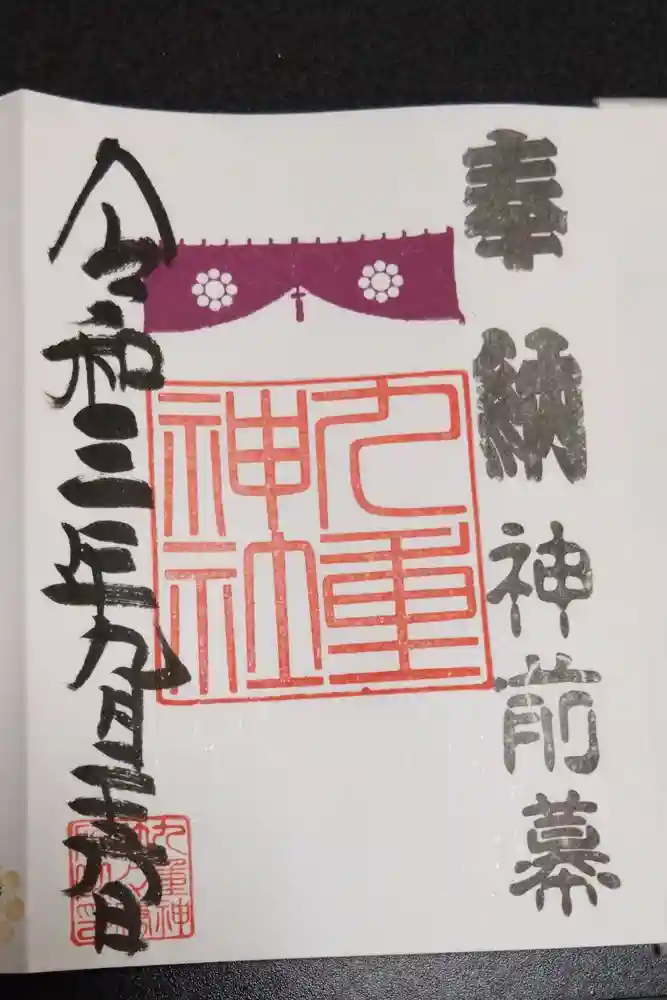 奉納 神前幕
九重
神社
令和三年九月二十五日
九重神